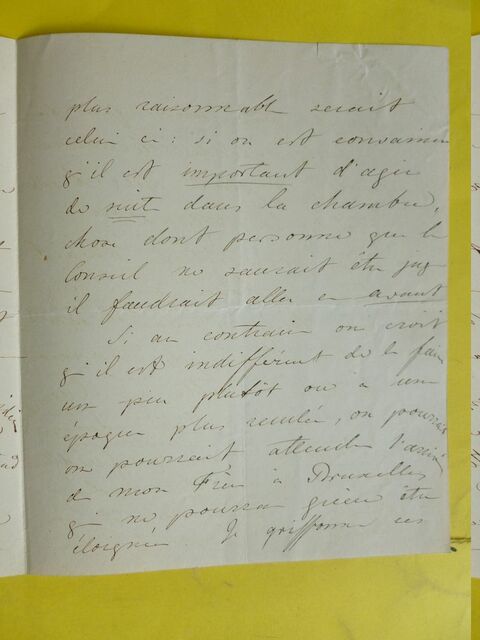 plus raisonnable serait
celui ci: si on est convaincu
qu'il est important d'agir
de nuit dans la chambre,
chose dont personne que le
Conseil ne saurait être jug
il faudrait aller en avant
Si au contraire on croit
qu'il est indifférent de le faire
un peu plutôt ou à un
époque plus reculée, on pourrait
on pourrait attendre l'arrivé
de mon Frère à Bruxelles
qui ne pourra guère être
éloignée. Je griffonne ces